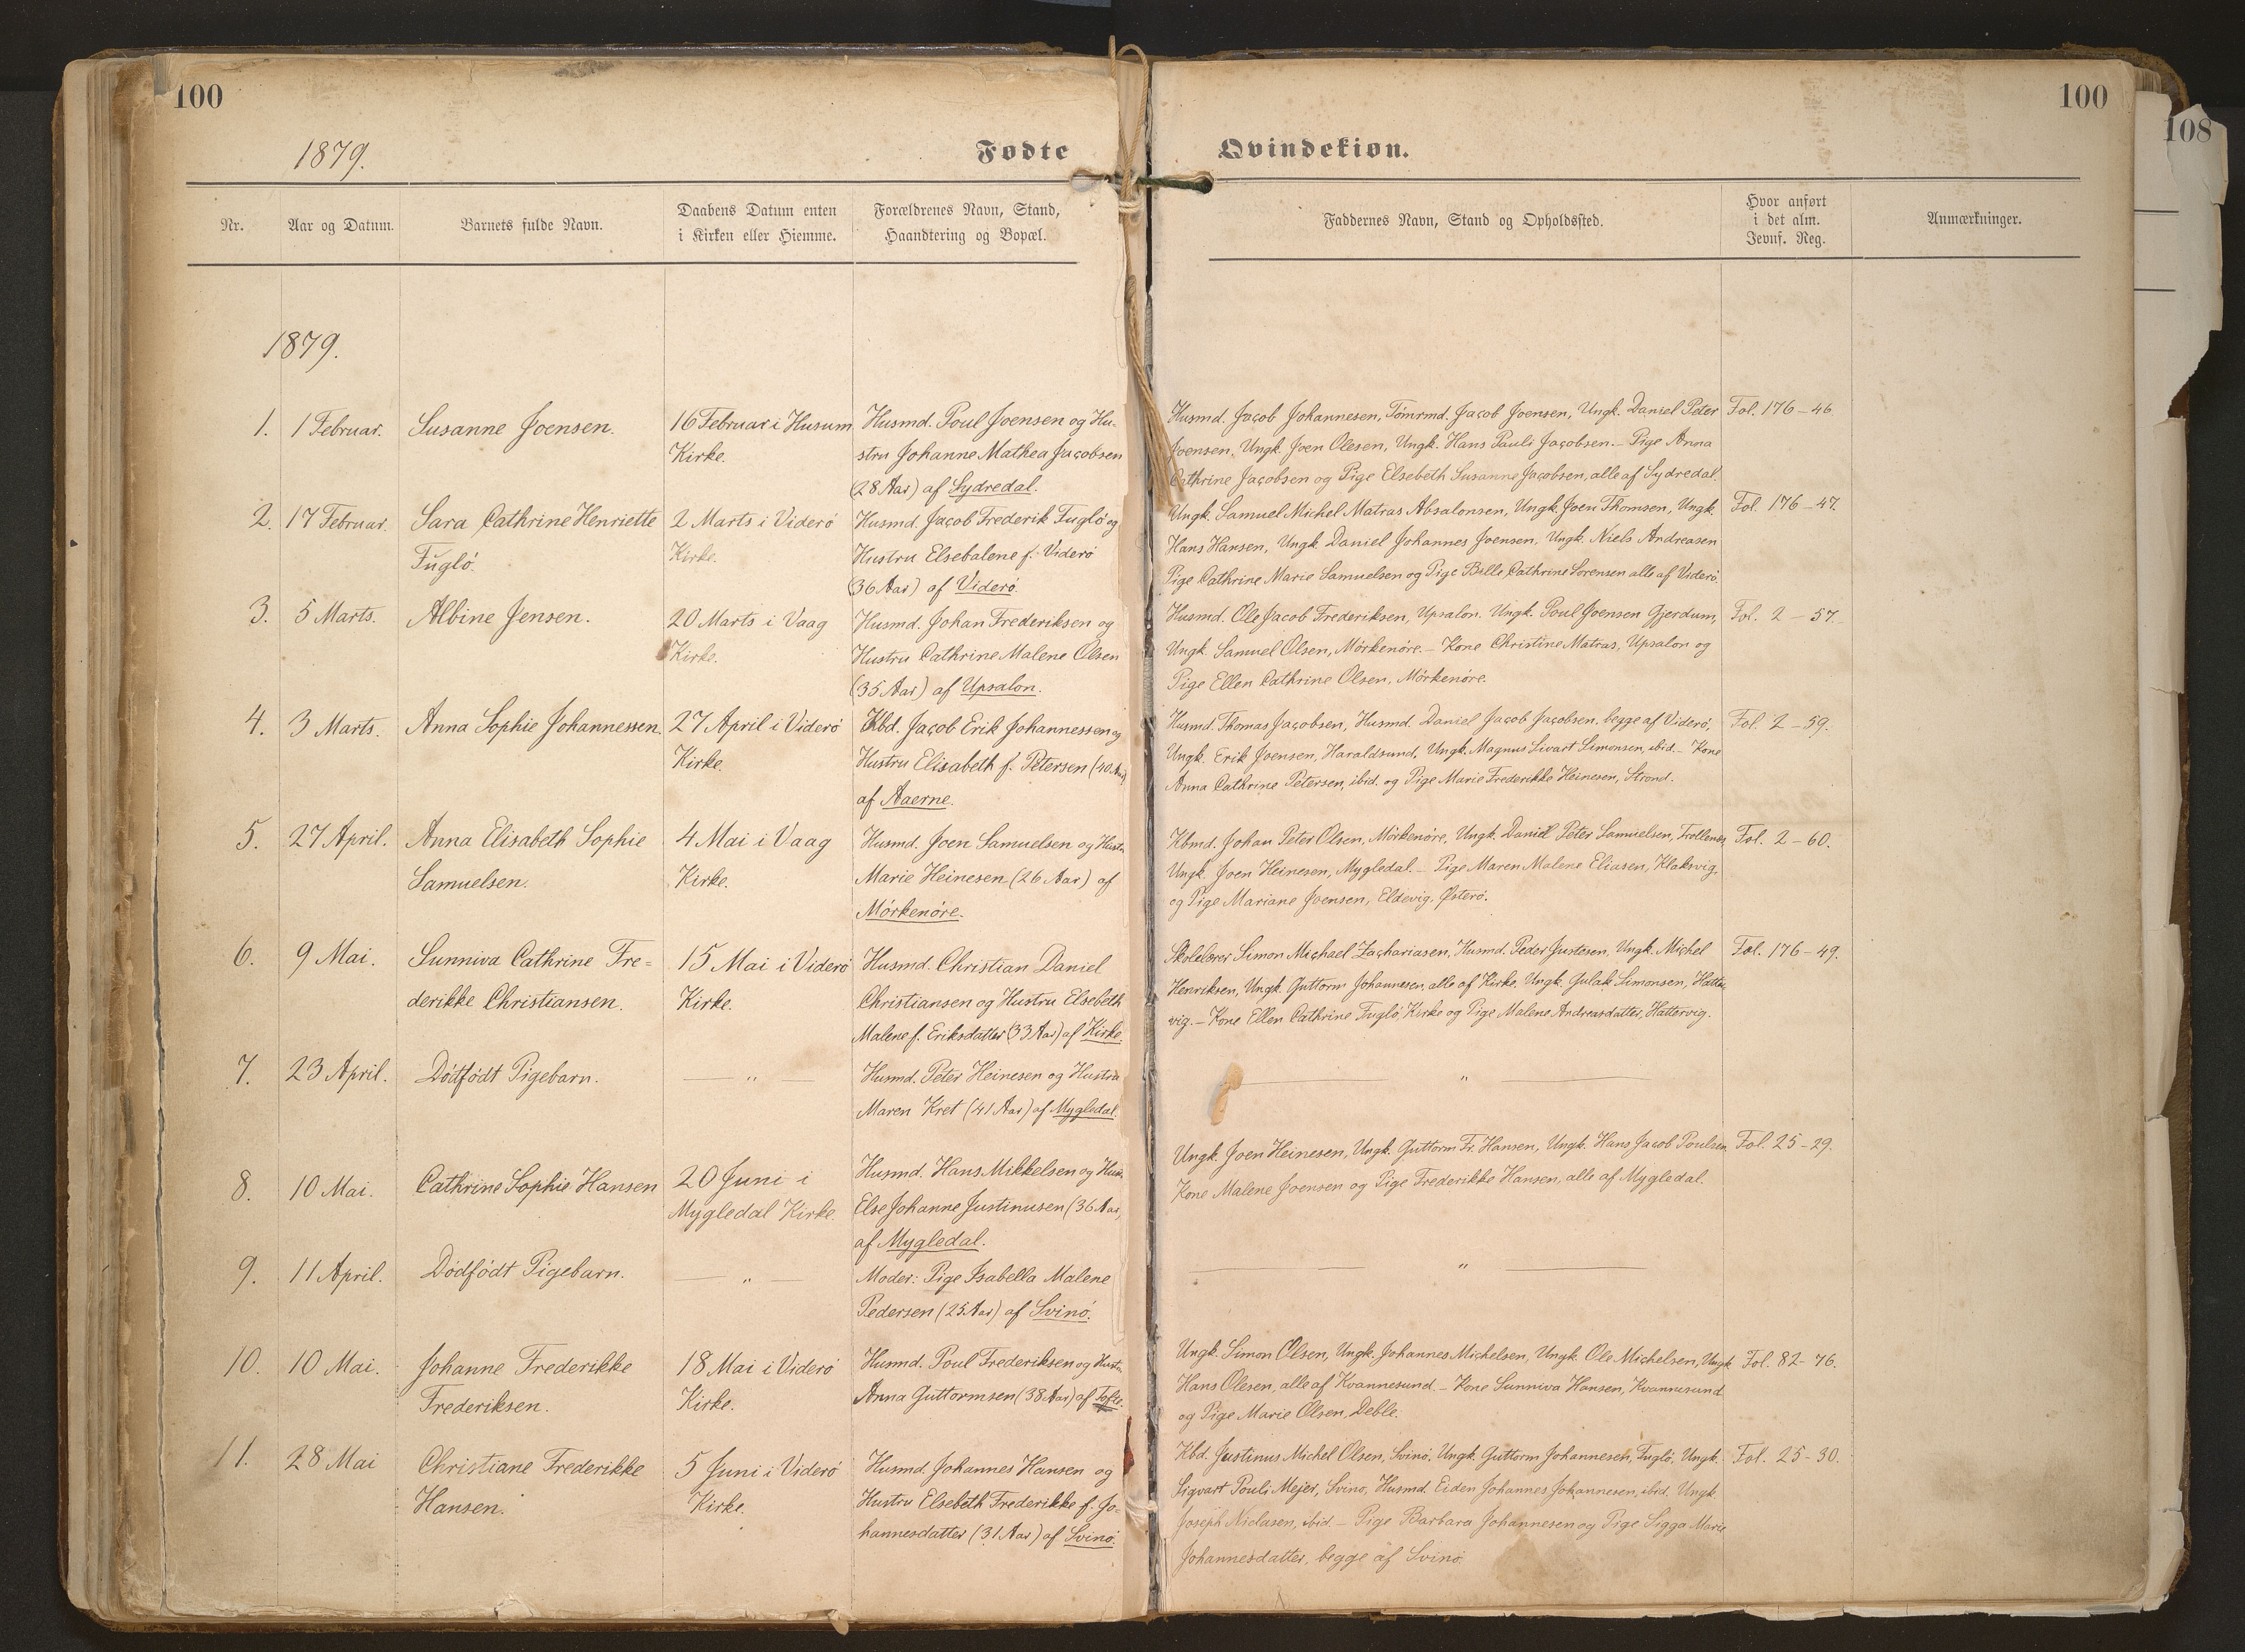 100
100
108
1879.
Fødte
Qvindekiøn.
Nr.
Aar og Datum.
Barnets fulde Navn.
Daabens Datum enten
i Kirken eller Hiemme.
Forældrenes Navn, Stand,
Haandtering og Bopæl.
Faddernes Navn, Stand og Opholdssted.
Hvor anført
i det alm.
Jevnf. Reg.
Anmærkninger.
1879.
1.
1 Februar.
Susanne Joensen.
16 Februar i Husum
Kirke.
Husmd. Poul Joensen og Hu-
stru Johanne Mathea Jacobsen
(28 Aar) af Sydredal.
Husmd. Jacob Johannesen, Tømrmd. Jacob Joensen, Ungk. Daniel Peter
Joensen, Ungk. Joen Olesen, Ungk. Hans Pauli Jacobsen. – Pige Anna
Cathrine Jacobsen og Pige Elsebeth Susanne Jacobsen, alle af Sydredal.
Fol. 176 – 46.
2.
17 Februar.
Sara Cathrine Henriette
Fuglö.
2 Marts i Viderö
Kirke.
Husmd. Jacob Frederik Fuglö og
Hustru Elsebalene f. Viderö
(36 Aar) af Viderö.
Ungk. Samuel Michel Matras Absalonsen, Ungk. Joen Thomsen, Ungk.
Hans Hansen, Ungk. Daniel Johannes Joensen, Ungk. Niels Andreasen
Pige Cathrine Marie Samuelsen og Pige Bille Cathrine Sörensen alle af Viderö.
Fol. 176 – 47.
3.
5 Marts.
Albine Jensen.
20 Marts i Vaag
Kirke.
Husmd. Johan Frederiksen og
Hustru Cathrine Malene Olsen
(35 Aar) af Upsalon.
Husmd. Ole Jacob Frederiksen, Upsalon. Ungk. Poul Joensen Gjerdum,
Ungk. Samuel Olsen, Mörkenöre. – Kone Christine Matras, Upsalon og
Pige Ellen Cathrine Olsen, Mörkenöre.
Fol. 2 – 57.
4.
3 Marts.
Anna Sophie Johannessen.
27 April i Viderö
Kirke.
Kbd. Jacob Erik Johannessen og
Hustru Elisabeth f. Petersen (40 Aar)
af Aaerne.
Husmd. Thomas Jacobsen, Husmd. Daniel Jacob Jacobsen, begge af Viderö,
Ungk. Erik Joensen, Haraldsund, Ungk. Magnus Sivart Simonsen, ibid. – Kone
Anna Cathrine Petersen, ibid. og Pige Marie Frederikke Heinesen, Strond.
Fol. 2 – 59.
5.
27 April.
Anna Elisabeth Sophie
Samuelsen.
4 Mai i Vaag
Kirke.
Husmd. Joen Samuelsen og Hustr.
Marie Heinesen (26 Aar) af
Mörkenöre.
Kbmd. Johan Peter Olsen, Mörkenöre, Ungk. Daniel Peter Samuelsen, Trollenes,
Ungk. Joen Heinesen, Mygledal. – Pige Maren Malene Eliasen, Klaksvig,
og Pige Mariane Joensen, Eldevig, Østerö.
Fol. 2 – 60.
6.
9 Mai.
Sunniva Cathrine Fre-
derikke Christiansen.
15 Mai i Viderö
Kirke.
Husmd. Christian Daniel
Christiansen og Hustru Elsebeth
Malene f. Eriksdatter (33 Aar) af Kirke.
Skolelærer Simon Michael Zachariasen, Husmd. Peder Justesen, Ungk. Michel
Henriksen, Ungk. Guttorm Johannesen, alle af Kirke. Ungk. Gulak Simonsen, Hatter-
vig. – Kone Ellen Cathrine Fuglö, Kirke og Pige Malene Andreasdatter, Hattervig.
Fol. 176 – 49.
7.
23 April.
Dödfödt Pigebarn.
— " —
Husmd. Peter Heinesen og Hustru
Maren Kret (41 Aar) af Mygledal.
— " —
8.
10 Mai.
Cathrine Sophie Hansen
20 Juni i
Mygledal Kirke.
Husmd. Hans Mikkelsen og Hustr.
Else Johanne Justinusen (36 Aar,
af Mygledal.
Ungk. Joen Heinesen, Ungk. Guttorm Fr. Hansen, Ungk. Hans Jacob Poulsen
Kone Malene Joensen og Pige Frederikke Hansen, alle af Mygledal.
Fol. 25 – 29.
9.
11 April.
Dödfödt Pigebarn.
— " —
Moder: Pige Isabella Malene
Pedersen (25 Aar) af Svinö.
— " —
10.
10 Mai.
Johanne Frederikke
Frederiksen.
18 Mai i Viderö
Kirke.
Husmd. Poul Frederiksen og Hustr.
Anna Guttormsen (38 Aar) af Tofte.
Ungk. Simon Olsen, Ungk. Johannes Michelsen, Ungk. Ole Michelsen, Ungk
Hans Olesen, alle af Kvannesund. – Kone Sunniva Hansen, Kvannesund
og Pige Marie Olsen, Deble.
Fol. 82 – 76.
11.
28 Mai
Christiane Frederikke
Hansen.
5 Juni i Viderö
Kirke.
Husmd. Johannes Hansen og
Hustru Elsebeth Frederikke f. Jo-
hannesdatter (31 Aar) af Svinö.
Kbd. Justinus Michel Olsen, Svinö, Ungk. Guttorm Johannesen, Fuglö, Ungk.
Sigvart Pouli Mejer, Svinö, Husmd. Eiden Johannes Johannesen, ibid. Ungk.
Joseph Niclasen, ibid. – Pige Barbara Johannesen og Pige Sigga Marie
Johannesdatter, begge af Svinö.
Fol. 25 – 30.